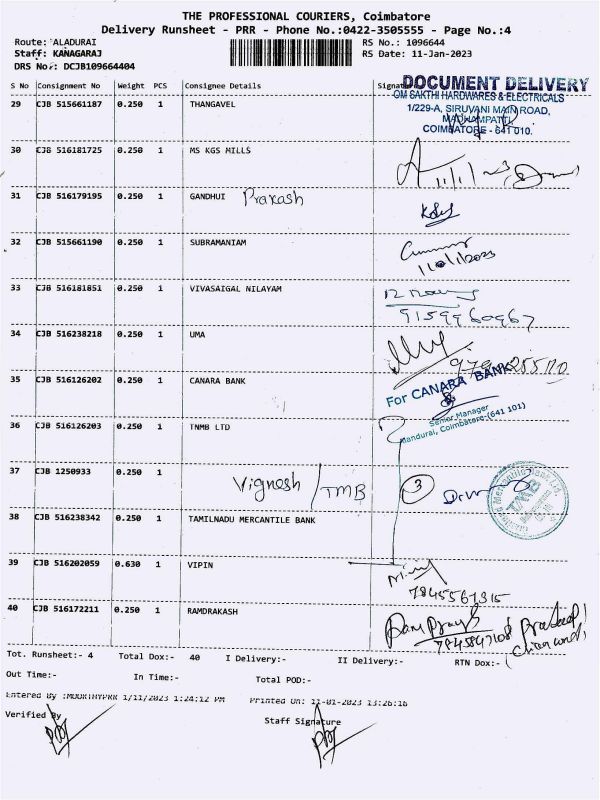 THE PROFESSIONAL COURIERS, Coimbatore
Delivery Runsheet - PRR - Phone No.:0422-3505555 - Page No.:4
Route: ALADURAI
RS No.: 1096644
Staff: KANAGARAJ
RS Date: 11-Jan-2023
DRS No.: DCJB109664404
S No Consignment No Weight PCS Consignee Details Signature
DOCUMENT DELIVERY
OM SAKTHI HARDWARES & ELECTRICALS
1/229-A, SIRUVANI MAIN ROAD,
MADHAMPATTI,
COIMBATORE - 641 010.
29 CJB 515661187 0.250 1 THANGAVEL
30 CJB 516181725 0.250 1 MS KGS MILLS
31 CJB 516179195 0.250 1 GANDHUI Prakash
32 CJB 515661190 0.250 1 SUBRAMANIAM
11/01/2023
33 CJB 516181851 0.250 1 VIVASAIGAL NILAYAM
9159960967
34 CJB 516238218 0.250 1 UMA
35 CJB 516126202 0.250 1 CANARA BANK
For CANARA BANK
Senior Manager
Mandurai, Coimbatore-(641 101)
36 CJB 516126203 0.250 1 TNMB LTD
37 CJB 1250933 0.250 1 Vignesh / TMB 3
38 CJB 516238342 0.250 1 TAMILNADU MERCANTILE BANK
39 CJB 516202059 0.630 1 VIPIN
7845567315
40 CJB 516172211 0.250 1 RAMDRAKASH
Tot. Runsheet:- 4 Total Dox:- 40 I Delivery:- II Delivery:- RTN Dox:-
Out Time:- In Time:- Total POD:-
Entered By :MOORTHYPRR 1/11/2023 1:24:12 PM Printed On: 11-01-2023 13:26:16
Verified By Staff Signature